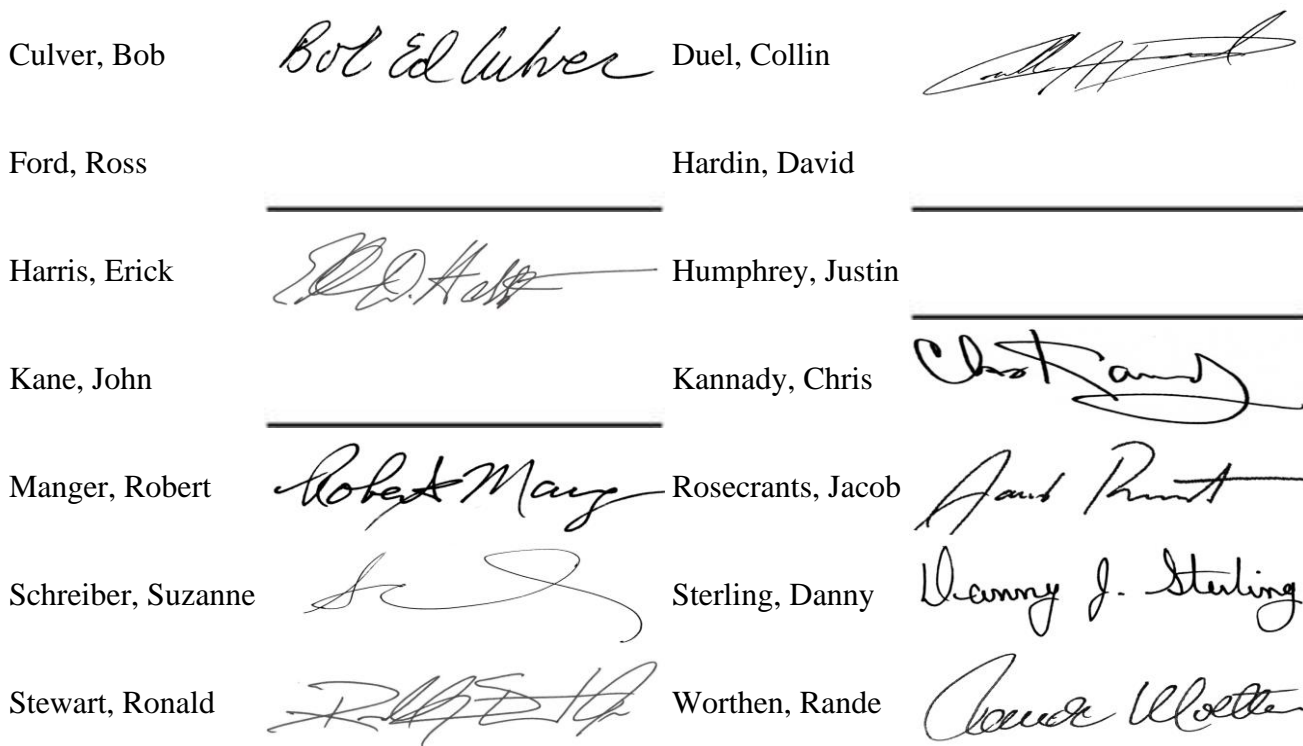 Culver, Bob Bob Ed Culver Duel, Collin
Ford, Ross Hardin, David
Harris, Erick Humphrey, Justin
Kane, John Kannady, Chris
Manger, Robert Robert Mang Rosecrants, Jacob
Schreiber, Suzanne Sterling, Danny Danny J. Sterling
Stewart, Ronald Worthen, Rande